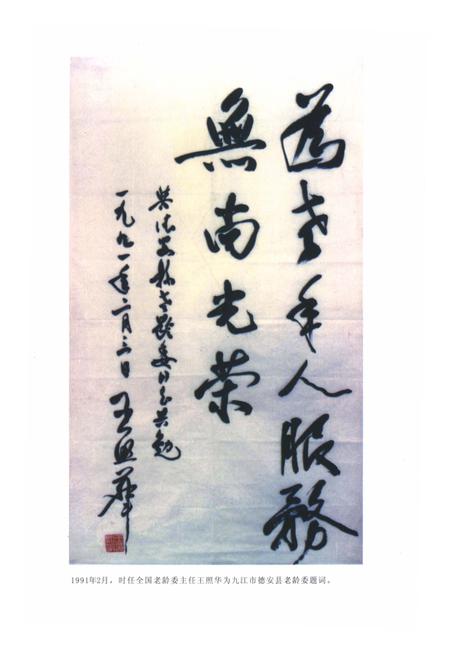 为老年人服務
無尚光荣
与德安县老龄委同志共勉
一九九一年二月三日 王照華
1991年2月，时任全国老龄委主任王照华为九江市德安县老龄委题词。